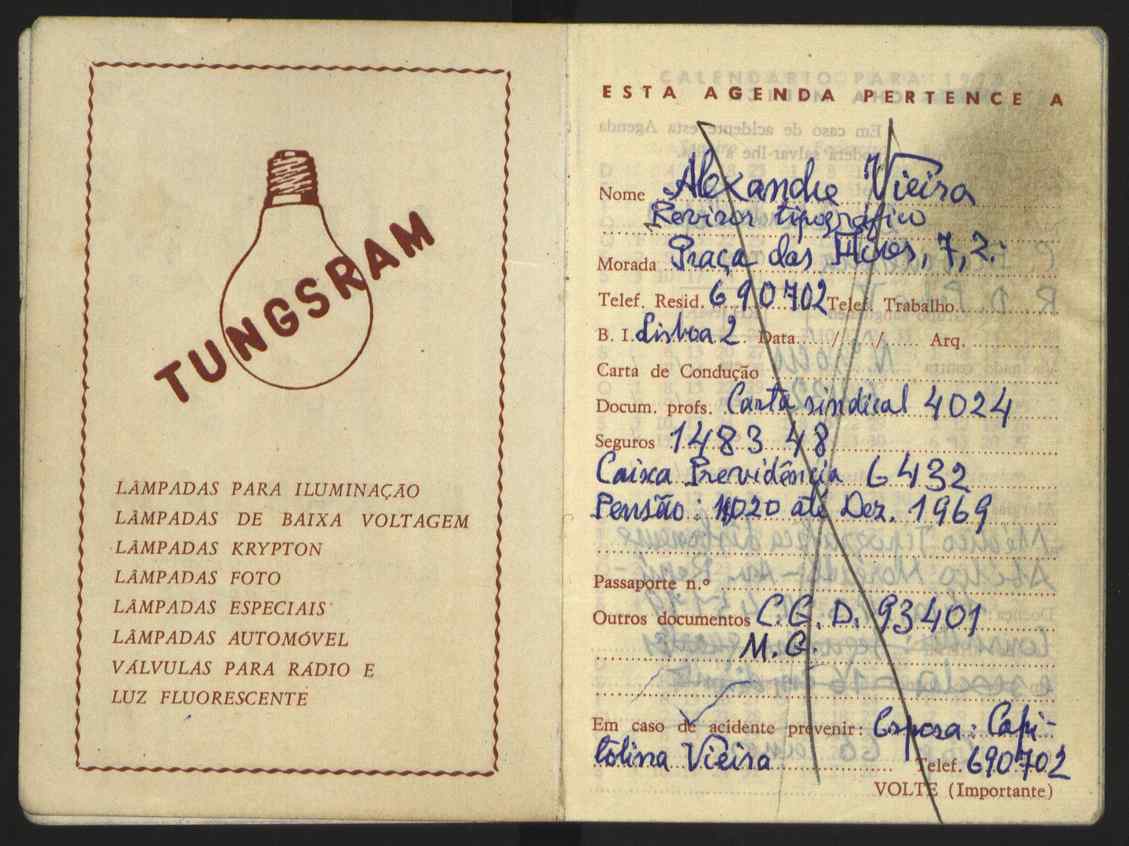 TUNGSRAM
LÂMPADAS PARA ILUMINAÇÃO
LÂMPADAS DE BAIXA VOLTAGEM
LÂMPADAS KRYPTON
LÂMPADAS FOTO
LÂMPADAS ESPECIAIS
LÂMPADAS AUTOMÓVEL
VÁLVULAS PARA RÁDIO E
LUZ FLUORESCENTE
ESTA AGENDA PERTENCE A
Nome Alexandre Vieira
Revisor tipográfico
Morada Praça das Flores, 7, 2.
Telef. Resid. 690702 Telef. Trabalho
B. I. Lisboa 2 Data / / Arq.
Carta de Condução
Docum. profs. Carta sindical 4024
Seguros 1483 48
Caixa Previdência 6432
Pensão: 1020 até Dez. 1969
Passaporte n.º
Outros documentos C.G.D. 93401
M.G.
Em caso de acidente prevenir: Esposa: Capi-
tolina Vieira Telef. 690702
VOLTE (Importante)